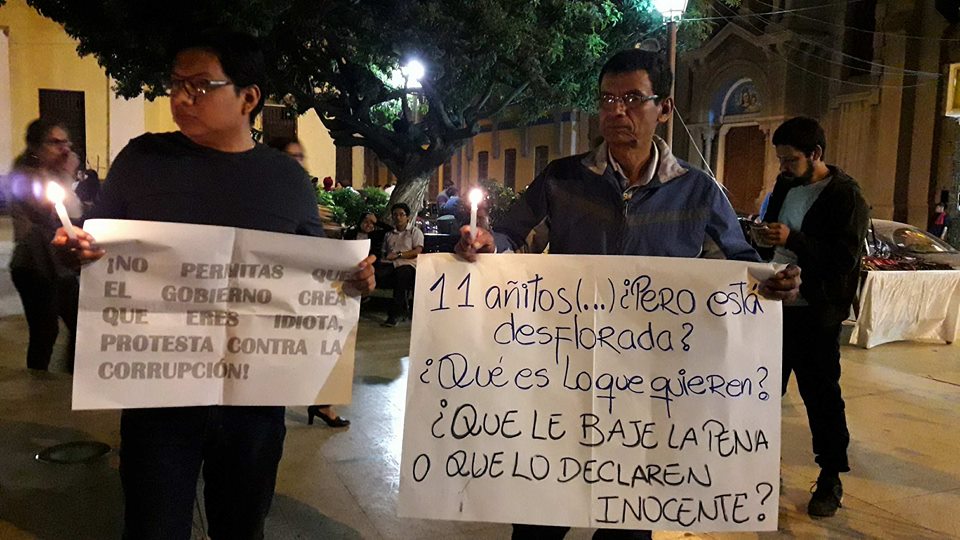 ¡NO PERMITAS QUE
EL GOBIERNO CREA
QUE ERES IDIOTA,
PROTESTA CONTRA LA
CORRUPCIÓN!
11 añitos(...)¿PERO está
desflorada?
¿QUÉ es lo que quieren?
¿QUE LE BAJE LA PENA
O QUE LO DECLAREN
INOCENTE?